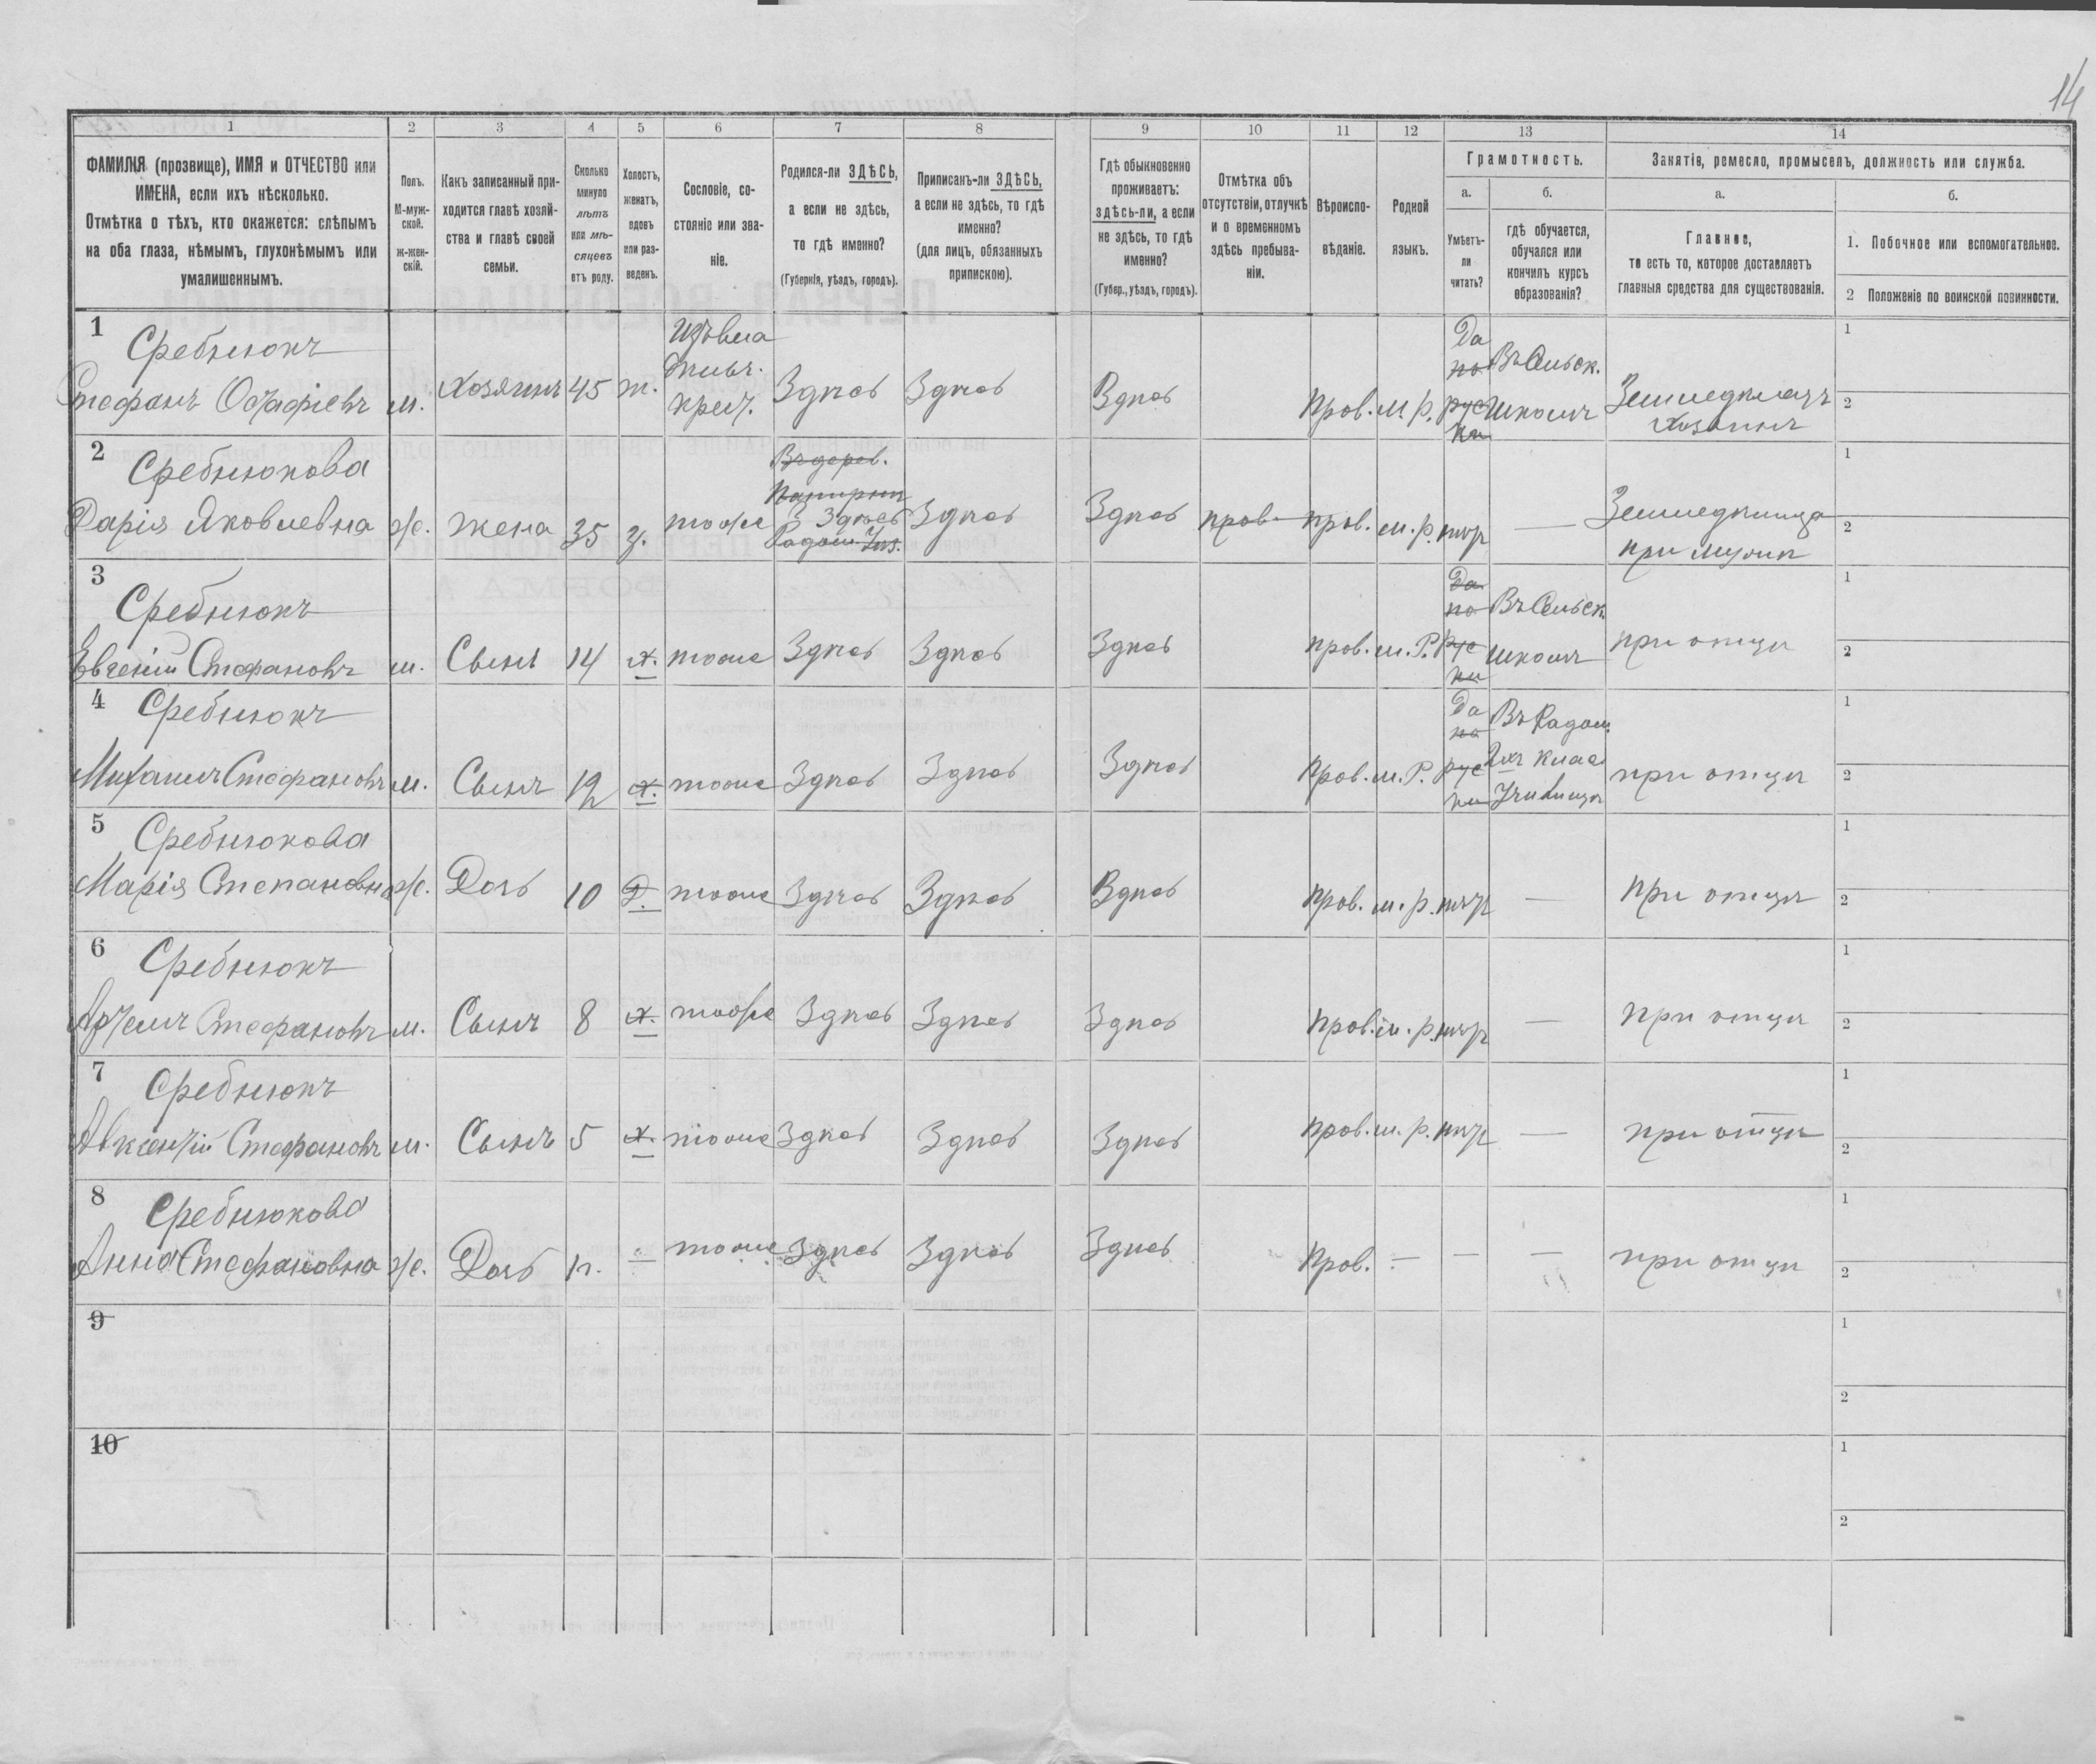 14
1 2 3 4 5 6 7 8 9 10 11 12 13 14
ФАМИЛІЯ (прозвище), ИМЯ и ОТЧЕСТВО или
ИМЕНА, если ихъ нѣсколько.
Отмѣтка о тѣхъ, кто окажется: слѣпымъ
на оба глаза, нѣмымъ, глухонѣмымъ или
умалишеннымъ.
Полъ.
М-муж-
ской.
ж-жен-
скій.
Какъ записанный при-
ходится главѣ хозяй-
ства и главѣ своей
семьи.
Сколько
минуло
лѣтъ
или мѣ-
сяцевъ
отъ роду.
Холостъ,
женатъ,
вдовъ
или раз-
веденъ.
Сословіе, со-
стояніе или зва-
ніе.
Родился-ли ЗДѢСЬ,
а если не здѣсь,
то гдѣ именно?
(Губернія, уѣздъ, городъ).
Приписанъ-ли ЗДѢСЬ,
а если не здѣсь, то гдѣ
именно?
(для лицъ, обязанныхъ
припискою).
Гдѣ обыкновенно
проживаетъ:
здѣсь-ли, а если
не здѣсь, то гдѣ
именно?
(Губер., уѣздъ, городъ).
Отмѣтка объ
отсутствіи, отлучкѣ
и о временномъ
здѣсь пребыва-
ніи.
Вѣроиспо-
вѣданіе.
Родной
языкъ.
Грамотность.
а.
Умѣетъ-
ли
читать?
б.
гдѣ обучается,
обучался или
кончилъ курсъ
образованія?
Занятіе, ремесло, промыселъ, должность или служба.
а.
Главное,
то есть то, которое доставляетъ
главныя средства для существованія.
б.
1. Побочное или вспомогательное.
2 Положеніе по воинской повинности.
1
Сребнюкъ
Стефанъ м. Хозяинъ 45 ж.
крест. Здѣсь Здѣсь Здѣсь Прав. м. р.
Да
по
рус
ки
Въ Сельск.
школѣ
Земледѣлецъ
Хозяинъ
1
2
2
Сребнюкова
Дарія Яковлевна ж. Жена 35 з. тоже
Въ дерев.
Здѣсь
Здѣсь Здѣсь прав. прав. м. р. нѣт —
Земледѣлица
при мужѣ
1
2
3
Сребнюкъ
Евгеній Стефановъ м. Сынъ 14 х. тоже Здѣсь Здѣсь Здѣсь прав. м. Р.
Да
по
рус
ки
Въ Сельск.
школѣ
при отцѣ
1
2
4
Сребнюкъ
Михаилъ Стефановъ м. Сынъ 12 х. тоже Здѣсь Здѣсь Здѣсь Прав. м. Р.
Да
по
рус
ки
Въ Радом.
2хъ клас
Училищѣ
при отцѣ
1
2
5
Сребнюкова
Марія Степановна ж. Дочь 10 Д. тоже Здѣсь Здѣсь Здѣсь прав. м. р. нѣт — при отцѣ
1
2
6
Сребнюкъ
Артемъ Стефановъ м. Сынъ 8 х. тоже Здѣсь Здѣсь Здѣсь прав. м. р. нѣт — при отцѣ
1
2
7
Сребнюкъ
Авксентій Стефановъ м. Сынъ 5 х. тоже Здѣсь Здѣсь Здѣсь прав. м. р. нѣт — при отцѣ
1
2
8
Сребнюкова
Анна Стефановна ж. Дочь — тоже Здѣсь Здѣсь Здѣсь Прав. — — — при отцѣ
1
2
9
1
2
10
1
2